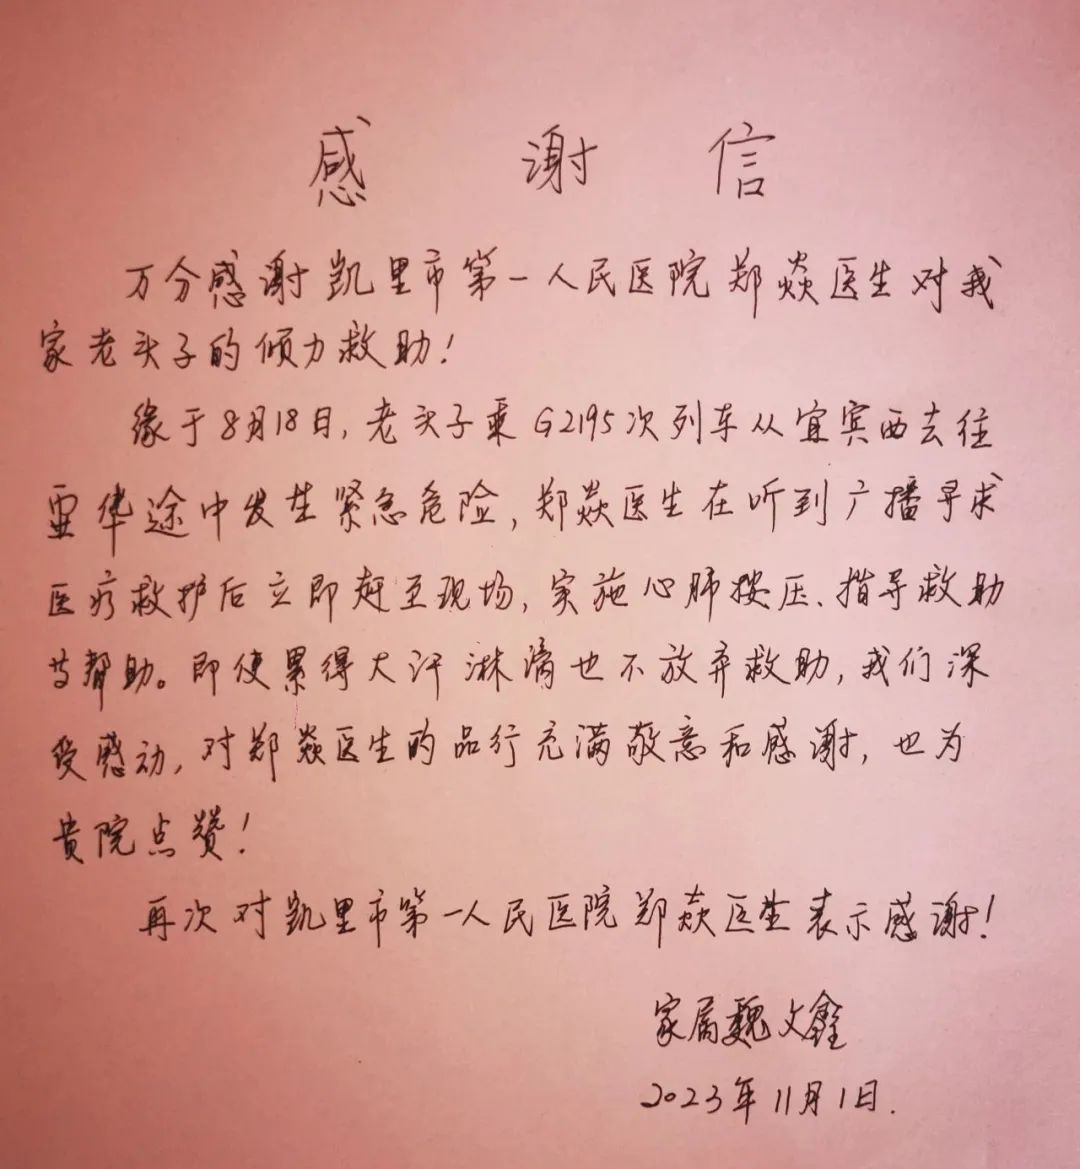 感谢信
万分感谢凯里市第一人民医院郑焱医生对我
家老头子的倾力救助!
缘于8月18日,老头子乘G2195次列车从宜宾西去往
途中发生紧急危险,郑焱医生在听到广播寻求
医疗救护后立即赶至现场,实施心肺按压、指导救助
等帮助。即使累得大汗淋漓也不放弃救助,我们深
受感动,对郑焱医生的品行充满敬意和感谢,也为
贵院点赞!
再次对凯里市第一人民医院郑焱医生表示感谢!
家属魏文鑫
2023年11月1日.